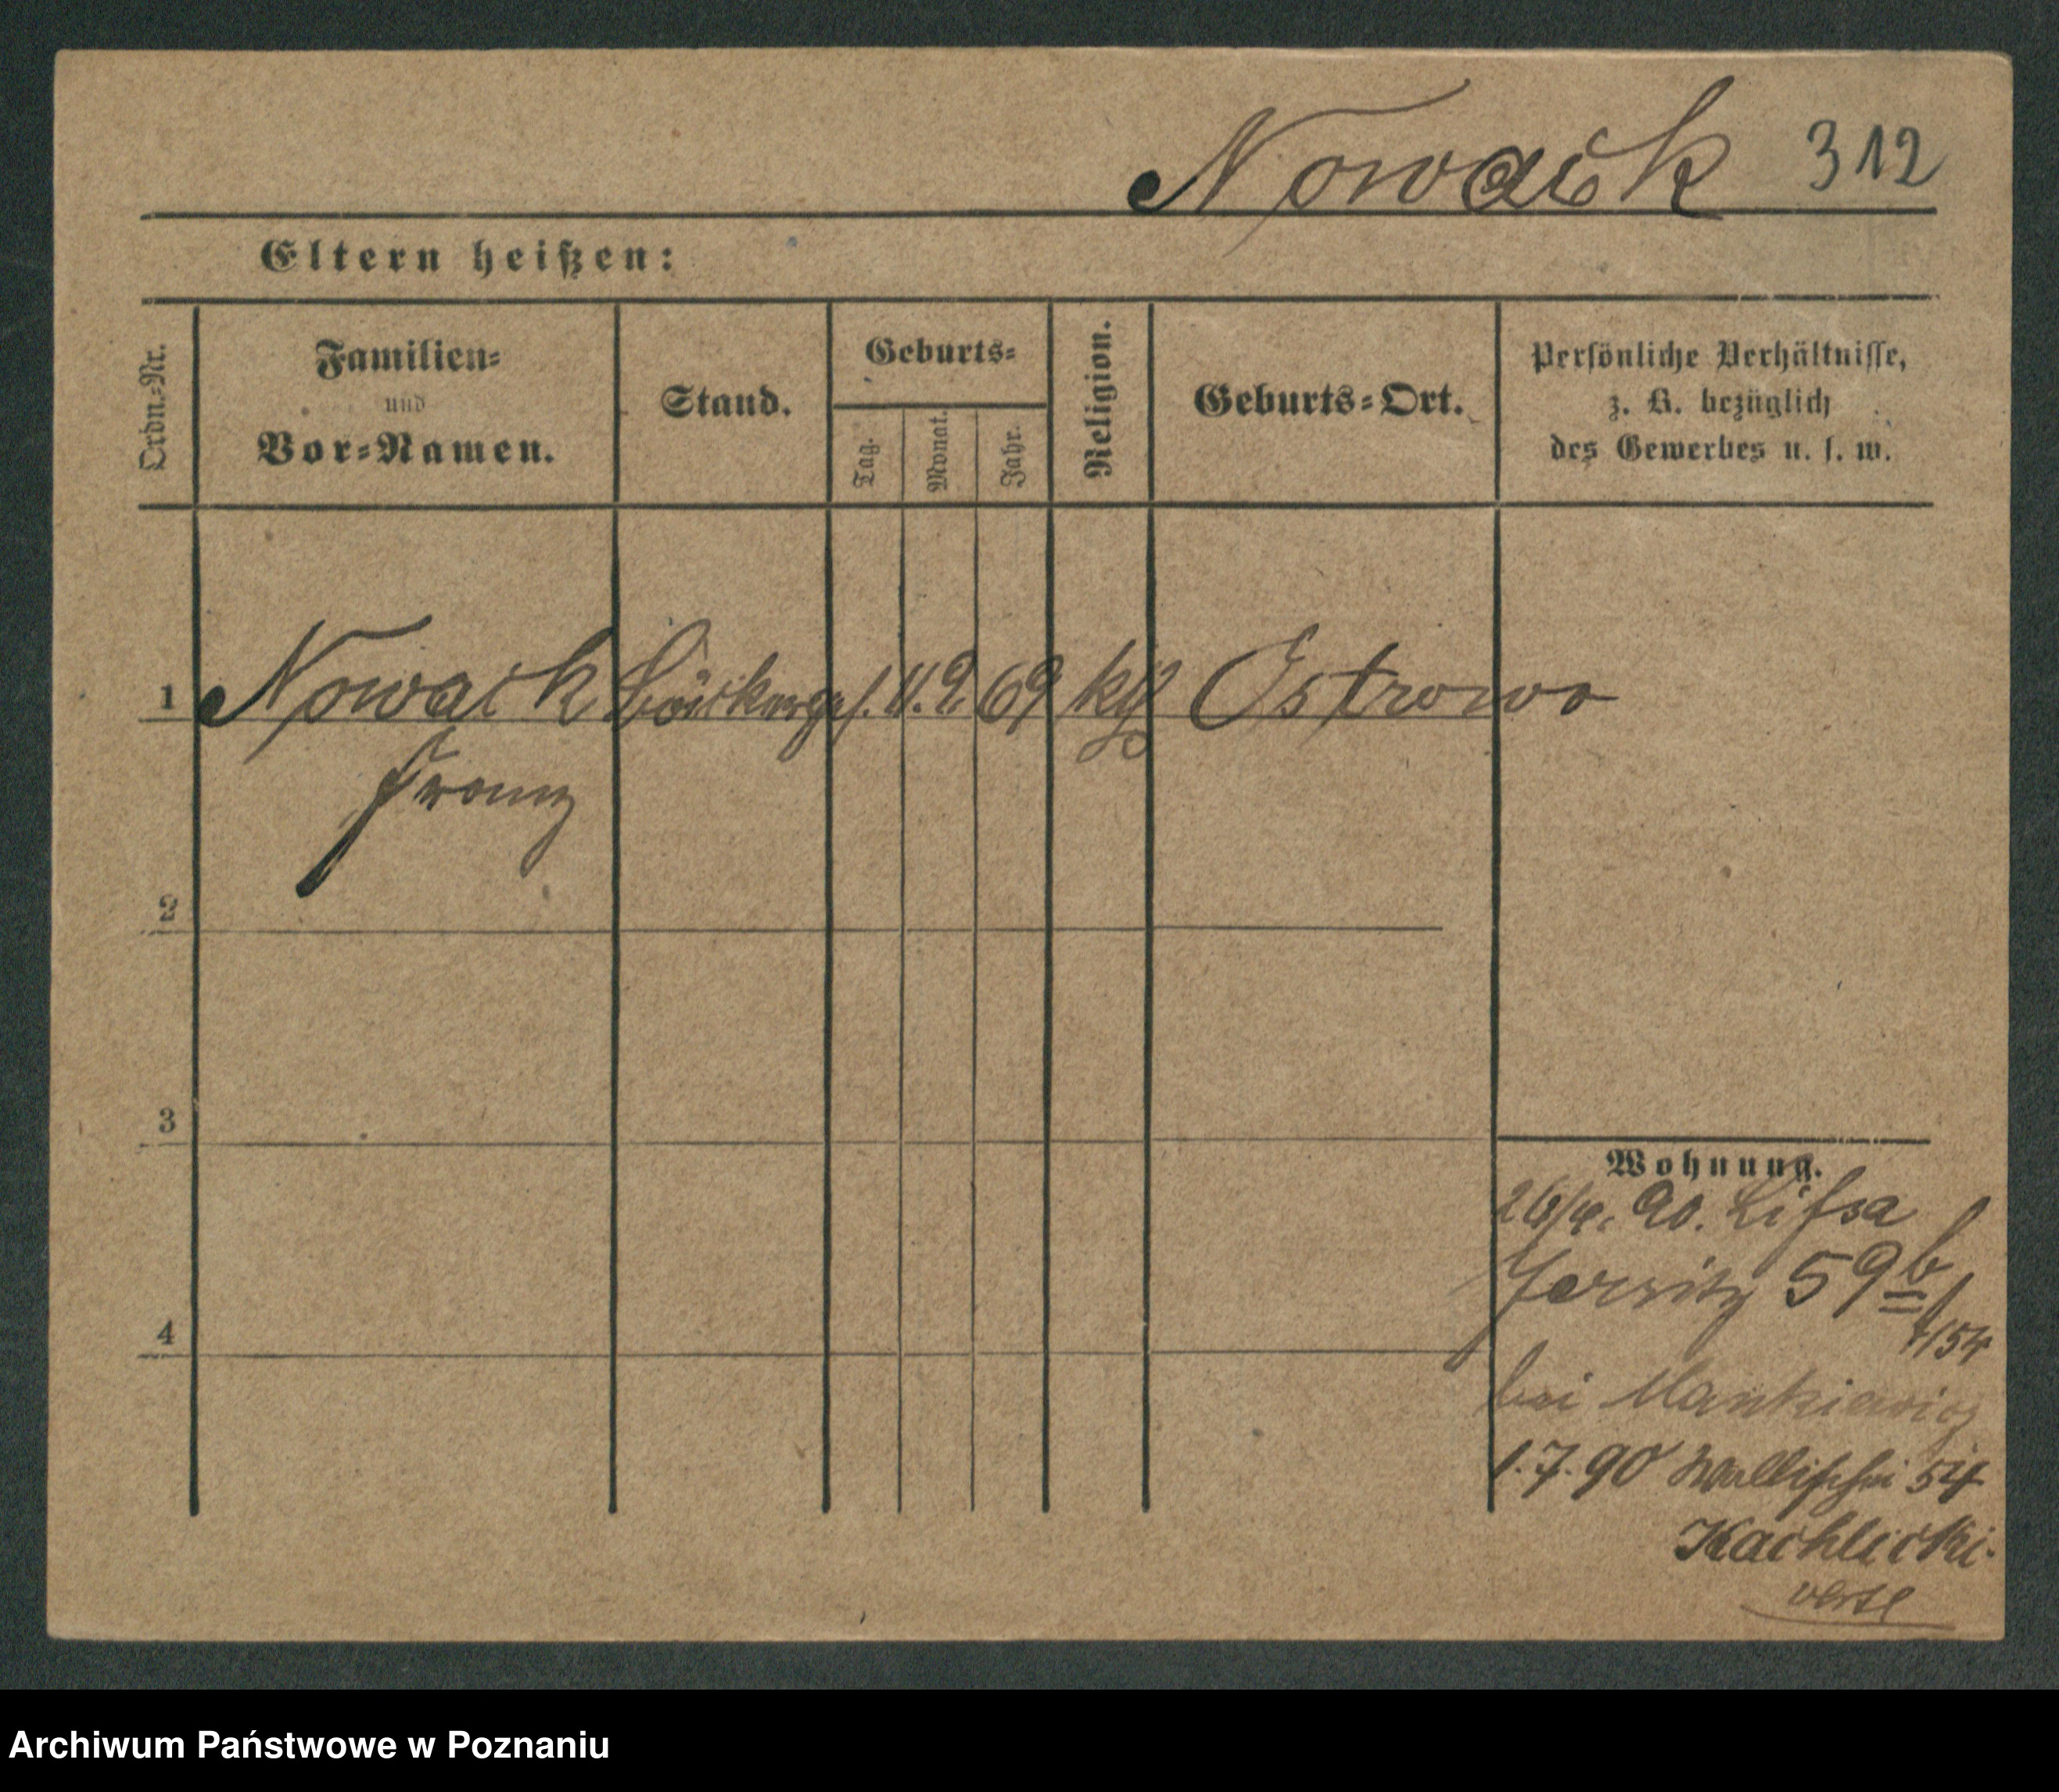 Nowack 312
Eltern heißen:
Ordn.-Nr.
Familien-
und
Vor-Namen.
Stand.
Geburts-
Tag.
Monat.
Jahr.
Religion.
Geburts-Ort.
Persönliche Verhältnisse,
z. B. bezüglich
des Gewerbes u. s. w.
1 Nowack Böttcherges. 11. 2. 69 kth Ostrowo
Franz
2
3
4
Wohnung.
26/4. 90. Lissa
Jersitz 59b
bei Mankiewicz
1.7.90 Wallischei 54
Kachlicki.
verte
Archiwum Państwowe w Poznaniu